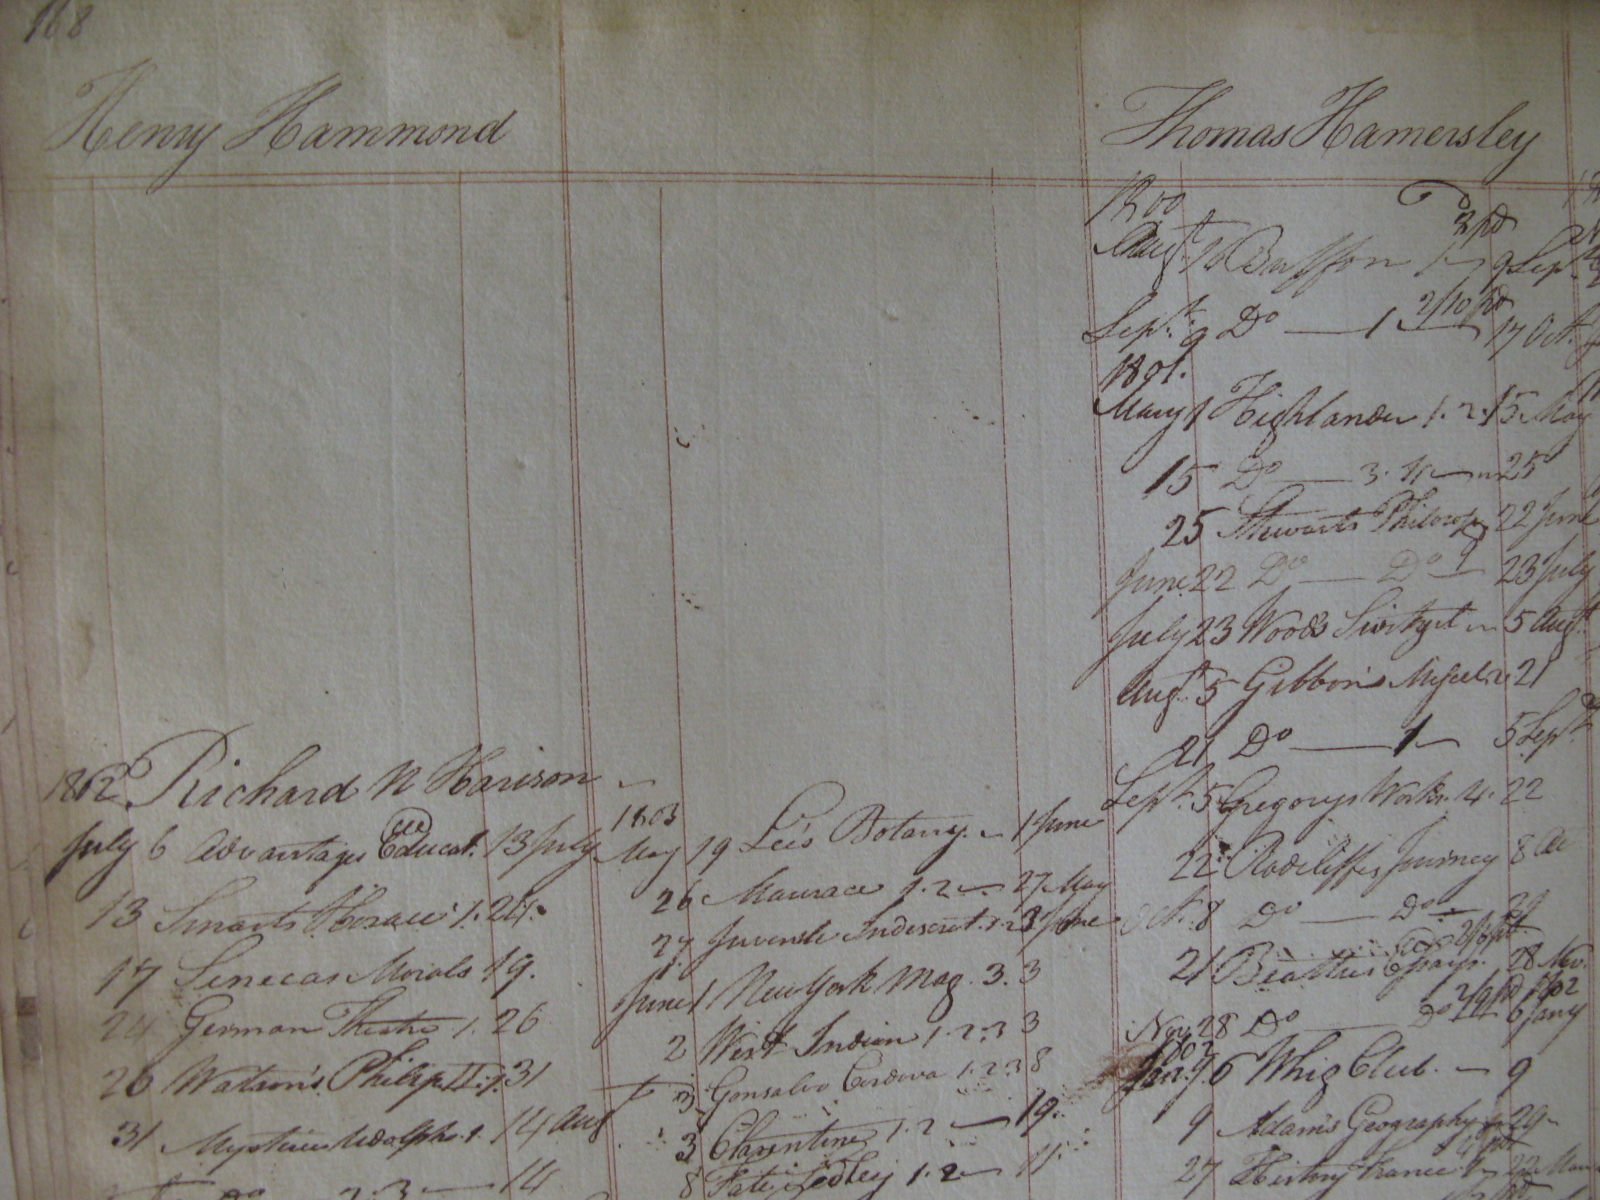 168
Henry Hammond
1802 Richard N Harison
July 6 Advantages Educat. 13 July
13 Smarts Horace 1. 24.
17 Senecas Morals 19.
24 German Theatre 1. 26
26 Watson's Philip II. 1. 31
31 Mysteries Udolpho. 1. 14 Aug
Do 2. 3 — 14
1803
May 19 Lee's Botany. — 1 June
26 1. 2 — 27 May
27 Juvenile Indiscret. 1. 2. 3 June
June 1 New York Mag. 3. 3
2 West Indian 1. 2. 3 3
3 Gonsalvo Cordova 1. 2. 3 8
3 Clarentine 1. 2 — 19.
8 Fate Sedley 1. 2 — 11.
Thomas Hamersley
1800
Augt. Buffon 1 9 Sept.
Sept. 9 Do — 1 2/10 pd 17 Oct.
1801.
May 1 Highlander 1. 2. 15 May
15 Do — 3. — 25
25 Stewarts Philosop 22 June
June 22 Do — Do — 23 July
July 23 Woods — 5 Augt.
Augt. 5 Gibbon's Miscel. 2. 21
21 Do — 1 — 5 Sept.
Sept. 5 Gregorys Works. 4. 22
22 Radcliffes Journey 8
Oct. 8 Do — Do —
21 Beatties Essays. 28 Nov.
Nov. 28 Do — Do 2/9 pd 6 Jany
1802
Jan. 6 Whig Club. — 9
9 Adam's Geography
27 History France